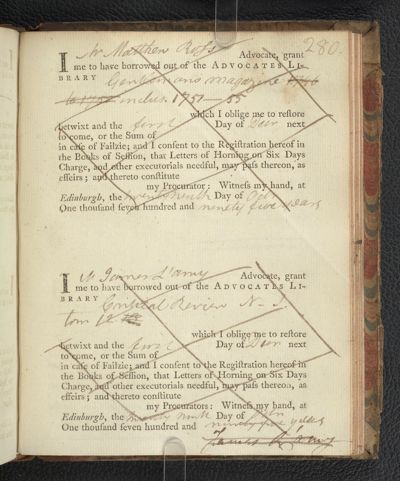 280.
I Mr Matthew Ross Advocate, grant
me to have borrowed out of the ADVOCATES LI-
BRARY Gentlemans magazine
inclus. 1751—55
which I oblige me to reſtore
betwixt and the first Day of Decr next
to come, or the Sum of
in caſe of Failzie; and I conſent to the Regiſtration hereof in
the Books of Seſſion, that Letters of Horning on Six Days
Charge, and other executorials needful, may paſs thereon, as
effeirs; and thereto conſtitute
my Procurator: Witneſs my hand, at
Edinburgh, the Day of
One thouſand ſeven hundred and ninety five years
I Mr James L'amy Advocate, grant
me to have borrowed out of the ADVOCATES LI-
BRARY Critical Review N. S.
tom 12
which I oblige me to reſtore
betwixt and the first Day of Decr next
to come, or the Sum of
in caſe of Failzie; and I conſent to the Regiſtration hereof in
the Books of Seſſion, that Letters of Horning on Six Days
Charge, and other executorials needful, may paſs thereon, as
effeirs; and thereto conſtitute
my Procurators: Witneſs my hand, at
Edinburgh, the Day of
One thouſand ſeven hundred and ninety five years
James L'amy